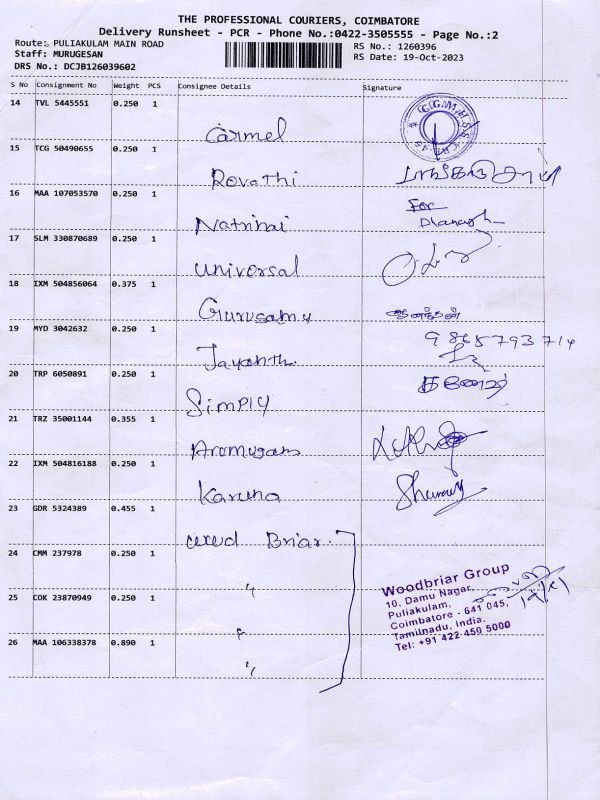 THE PROFESSIONAL COURIERS, COIMBATORE
Delivery Runsheet - PCR - Phone No.:0422-3505555 - Page No.:2
Route: PULIAKULAM MAIN ROAD
RS No.: 1260396
Staff: MURUGESAN
RS Date: 19-Oct-2023
DRS No.: DCJB126039602
S No Consignment No Weight PCS Consignee Details Signature
14 TVL 5445551 0.250 1
Carmel
15 TCG 50490655 0.250 1
Revathi
16 MAA 107053570 0.250 1
For
Natrinai
17 SLM 330870689 0.250 1
Universal
18 IXM 504856064 0.375 1
Gurusamy
19 MYD 3042632 0.250 1
9865793714
Jayanthi
20 TRP 6050891 0.250 1
Simply
21 TRZ 35001144 0.355 1
Arumugam
22 IXM 504816188 0.250 1
Karuna
23 GDR 5324389 0.455 1
wood Briar.
24 CMM 237978 0.250 1
"
25 COK 23870949 0.250 1
"
26 MAA 106338378 0.890 1
"
Woodbriar Group
10, Damu Nagar,
Puliakulam,
Coimbatore - 641 045,
Tamilnadu, India.
Tel: +91 422 450 5000